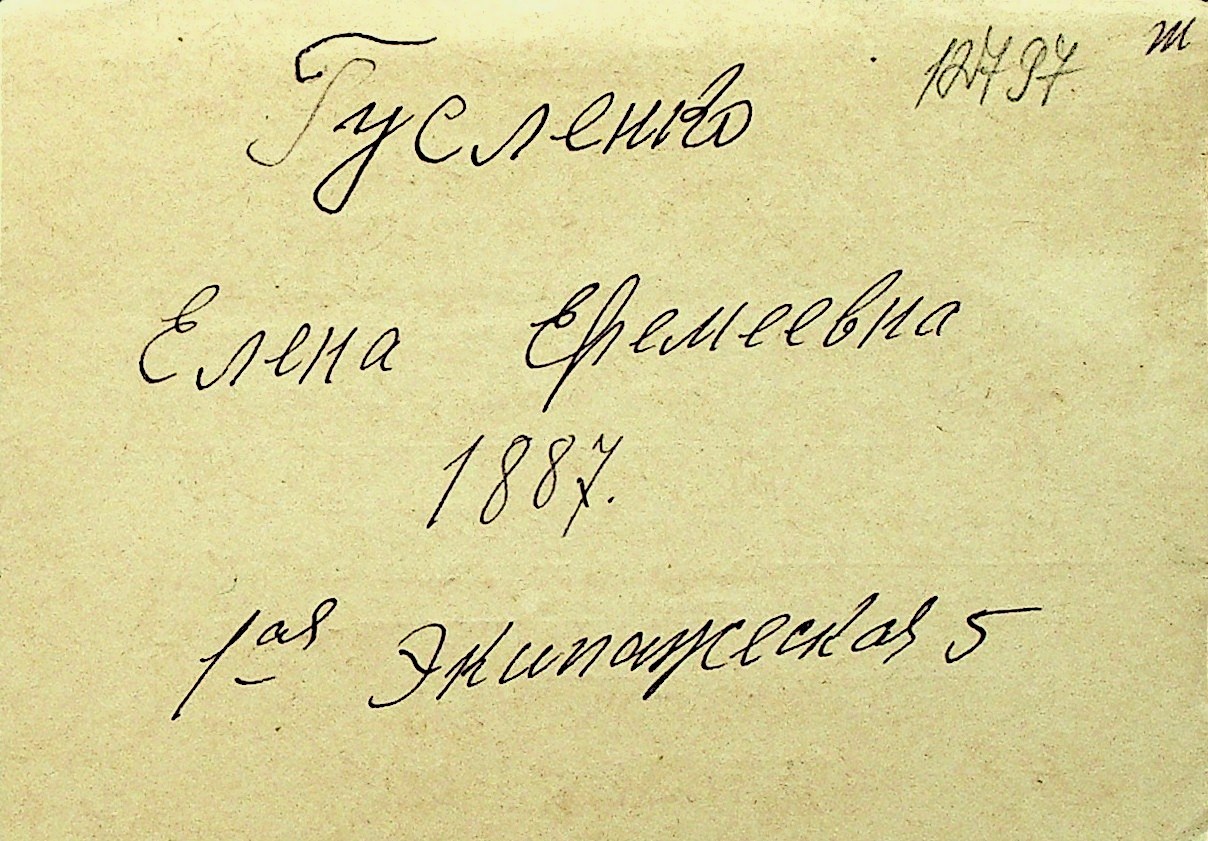 12797 т
Гусленко
Елена Еремеевна
1887.
1ая Экипажеская 5